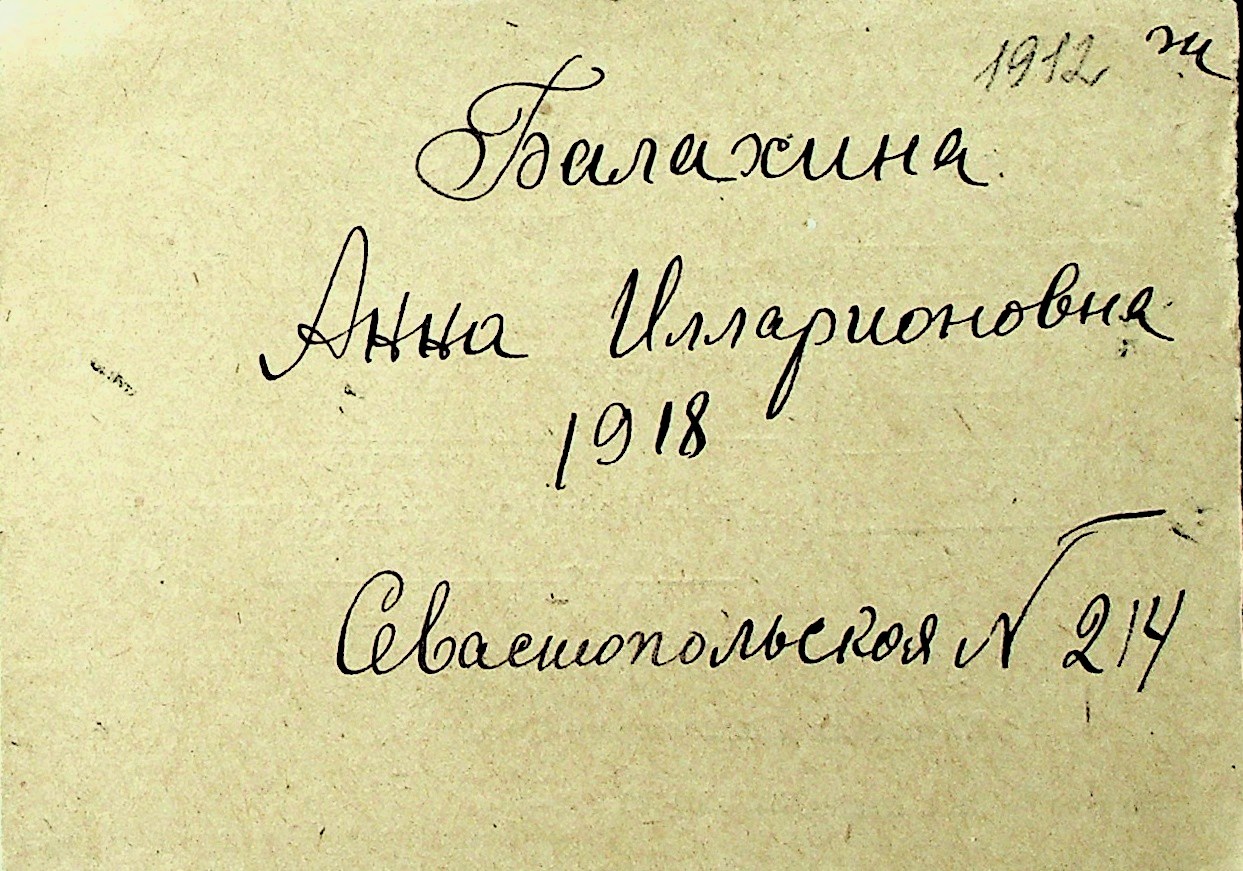 1912 ж
Балахина
Анна Илларионовна
1918
Севастопольская № 214